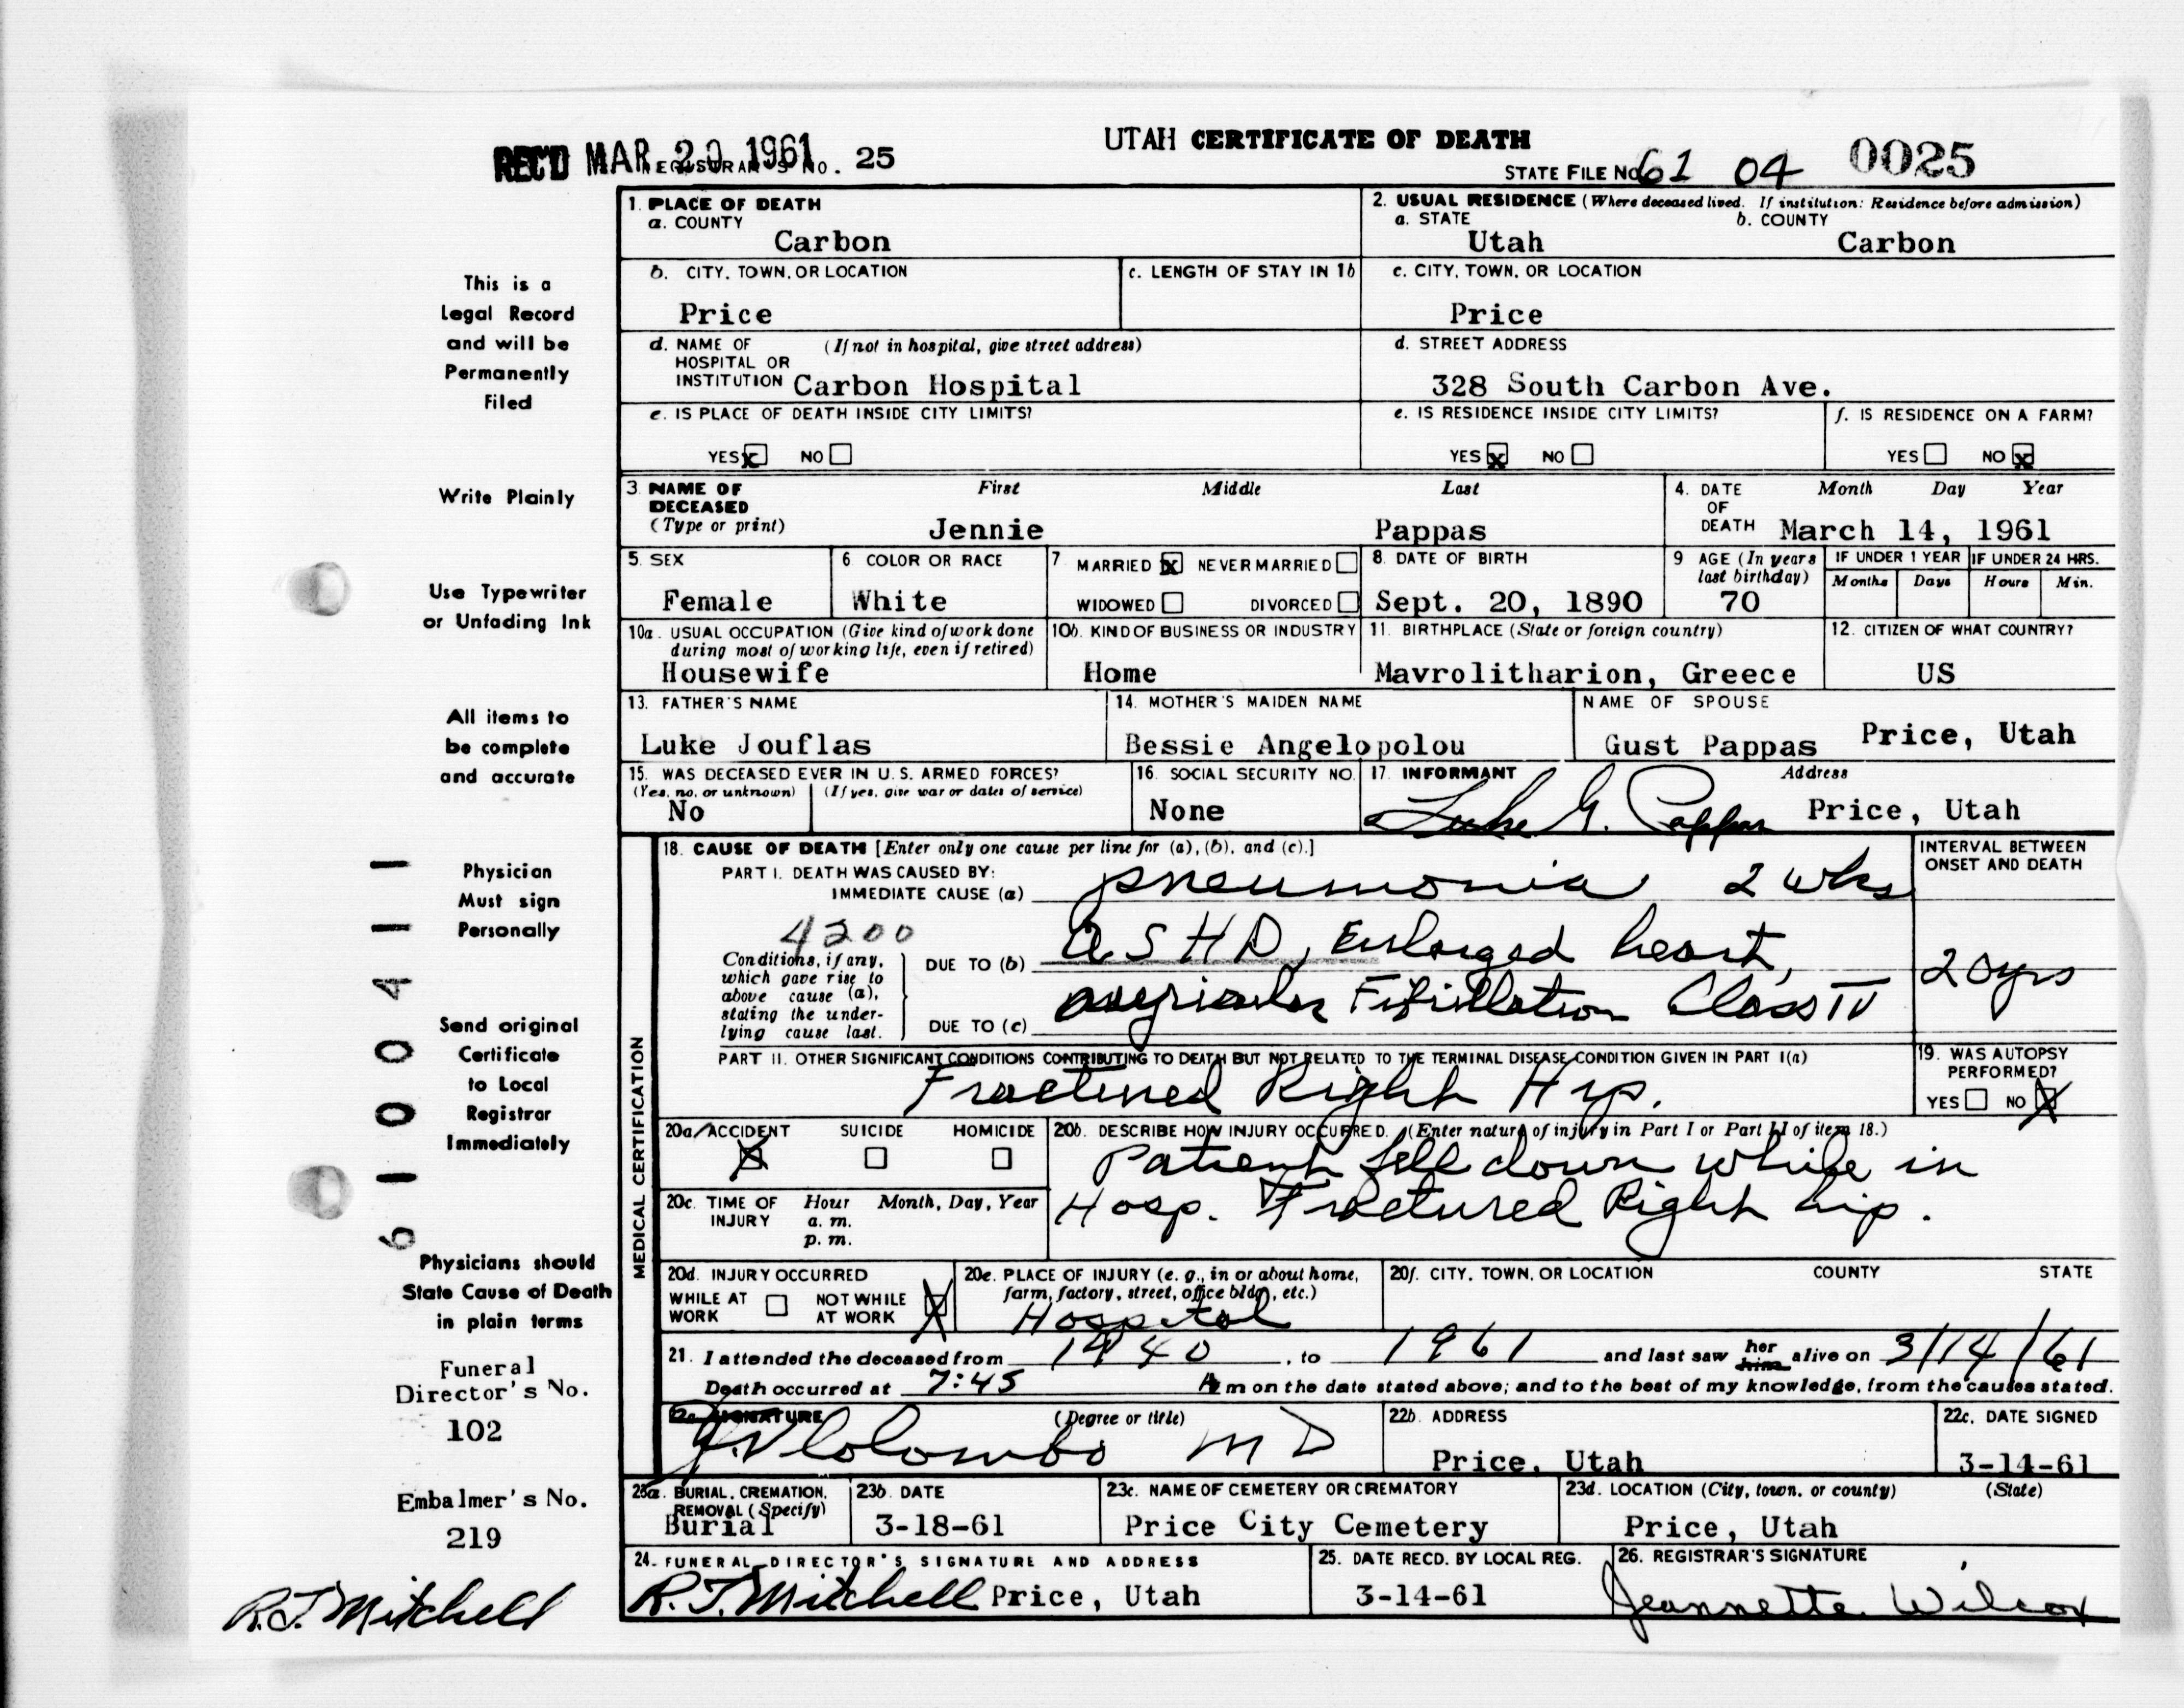 UTAH CERTIFICATE OF DEATH
REC'D MAR 20 1961 REGISTRAR'S No. 25
STATE FILE No. 61 04 0025
1. PLACE OF DEATH
a. COUNTY
Carbon
2. USUAL RESIDENCE (Where deceased lived. If institution: Residence before admission)
a. STATE b. COUNTY
Utah Carbon
b. CITY, TOWN, OR LOCATION
Price
c. LENGTH OF STAY IN 1b
c. CITY, TOWN, OR LOCATION
Price
d. NAME OF (If not in hospital, give street address)
HOSPITAL OR
INSTITUTION Carbon Hospital
d. STREET ADDRESS
328 South Carbon Ave.
e. IS PLACE OF DEATH INSIDE CITY LIMITS?
YES x NO
e. IS RESIDENCE INSIDE CITY LIMITS?
YES x NO
f. IS RESIDENCE ON A FARM?
YES NO x
3. NAME OF First Middle Last
DECEASED
(Type or print) Jennie Pappas
4. DATE Month Day Year
OF
DEATH March 14, 1961
5. SEX
Female
6 COLOR OR RACE
White
7 MARRIED x NEVER MARRIED
WIDOWED DIVORCED
8 DATE OF BIRTH
Sept. 20, 1890
9 AGE (In years
last birthday)
70
IF UNDER 1 YEAR
Months Days
IF UNDER 24 HRS.
Hours Min.
10a. USUAL OCCUPATION (Give kind of work done
during most of working life, even if retired)
Housewife
10b. KIND OF BUSINESS OR INDUSTRY
Home
11. BIRTHPLACE (State or foreign country)
Mavrolitharion, Greece
12. CITIZEN OF WHAT COUNTRY?
US
13. FATHER'S NAME
Luke Jouflas
14. MOTHER'S MAIDEN NAME
Bessie Angelopolou
NAME OF SPOUSE
Gust Pappas Price, Utah
15. WAS DECEASED EVER IN U.S. ARMED FORCES?
(Yes, no, or unknown) (If yes, give war or dates of service)
No
16. SOCIAL SECURITY NO.
None
17. INFORMANT Address
Luke G. Pappas Price, Utah
MEDICAL CERTIFICATION
18. CAUSE OF DEATH [Enter only one cause per line for (a), (b), and (c).]
INTERVAL BETWEEN
ONSET AND DEATH
PART I. DEATH WAS CAUSED BY:
IMMEDIATE CAUSE (a) pneumonia 2 wks
4200
Conditions, if any,
which gave rise to
above cause (a),
stating the under-
lying cause last.
DUE TO (b) ASHD, Enlarged heart,
20 yrs
DUE TO (c) auricular Fibrillation Class IV
PART II. OTHER SIGNIFICANT CONDITIONS CONTRIBUTING TO DEATH BUT NOT RELATED TO THE TERMINAL DISEASE CONDITION GIVEN IN PART I(a)
Fractured Right Hip.
19. WAS AUTOPSY
PERFORMED?
YES NO X
20a. ACCIDENT SUICIDE HOMICIDE
X
20b. DESCRIBE HOW INJURY OCCURRED. (Enter nature of injury in Part I or Part II of item 18.)
Patient fell down while in
Hosp. Fractured Right hip.
20c. TIME OF Hour Month, Day, Year
INJURY a. m.
p. m.
20d. INJURY OCCURRED
WHILE AT NOT WHILE X
WORK AT WORK
20e. PLACE OF INJURY (e. g., in or about home,
farm, factory, street, office bldg., etc.)
Hospital
20f. CITY, TOWN, OR LOCATION COUNTY STATE
21. I attended the deceased from 1940, to 1961 and last saw her him alive on 3/14/61
Death occurred at 7:45 A m on the date stated above; and to the best of my knowledge, from the causes stated.
22a. SIGNATURE (Degree or title)
Colombo MD
22b. ADDRESS
Price, Utah
22c. DATE SIGNED
3-14-61
23a. BURIAL, CREMATION,
REMOVAL (Specify)
Burial
23b. DATE
3-18-61
23c. NAME OF CEMETERY OR CREMATORY
Price City Cemetery
23d. LOCATION (City, town, or county) (State)
Price, Utah
24. FUNERAL DIRECTOR'S SIGNATURE AND ADDRESS
R.J. Mitchell Price, Utah
25. DATE RECD. BY LOCAL REG.
3-14-61
26. REGISTRAR'S SIGNATURE
Jeannette Wilcox
This is a
Legal Record
and will be
Permanently
Filed
Write Plainly
Use Typewriter
or Unfading Ink
All items to
be complete
and accurate
Physician
Must sign
Personally
Send original
Certificate
to Local
Registrar
Immediately
Physicians should
State Cause of Death
in plain terms
6100411
Funeral
Director's No.
102
Embalmer's No.
219
R.J. Mitchell